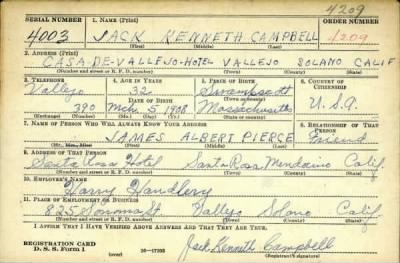 4209
SERIAL NUMBER 1. NAME (Print) ORDER NUMBER
4003 JACK KENNETH CAMPBELL 4209
(First) (Middle) (Last)
2. ADDRESS (Print)
CASA-DE-VALLEJO-HOTEL VALLEJO SOLANO CALIF
(Number and street or R. F. D. number) (Town) (County) (State)
3. TELEPHONE 4. AGE IN YEARS 5. PLACE OF BIRTH 6. COUNTRY OF CITIZENSHIP
Vallejo 32 Swampscott
DATE OF BIRTH (Town or county)
390 Mch 5 1908 Massachusetts U.S.A.
(Exchange) (Number) (Mo.) (Day) (Yr.) (State or country)
7. NAME OF PERSON WHO WILL ALWAYS KNOW YOUR ADDRESS 8. RELATIONSHIP OF THAT PERSON
JAMES ALBERT PIERCE Friend
(Mr., Mrs., Miss) (First) (Middle) (Last)
9. ADDRESS OF THAT PERSON
Santa Rosa Hotel Santa Rosa Mendocino Calif.
(Number and street or R. F. D. number) (Town) (County) (State)
10. EMPLOYER'S NAME
Harry Handlery
11. PLACE OF EMPLOYMENT OR BUSINESS
825 Sonoma St. Vallejo Solano Calif.
(Number and street or R. F. D. number) (Town) (County) (State)
I AFFIRM THAT I HAVE VERIFIED ABOVE ANSWERS AND THAT THEY ARE TRUE.
REGISTRATION CARD
D. S. S. Form 1 (over) 16-17105 Jack Kenneth Campbell
(Registrant's signature)